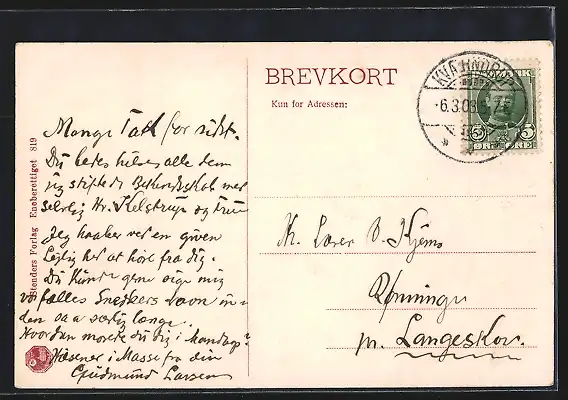 BREVKORT
Kun for Adressen:
KVÆRNDRUP
6.3.08
5 ØRE 5
Stenders Forlag Eneberettiget 819
Mange Tak for sidst.
Du bedes hilse alle dem
jeg stiftede Bekendtskab med
særlig Hr. Kelstrup og Frue
Jeg haaber ved en given
Lejlighed at høre fra dig.
Du kunde gerne sige mig
vor fælles Snedkers Navn in-
den saa særlig længe.
Hvordan morede du dig i Mandags?
Hilsener i Masse fra din
Gudmund Larsen
Hr. Lærer O. Kjems
Rønninge
pr. Langeskov.